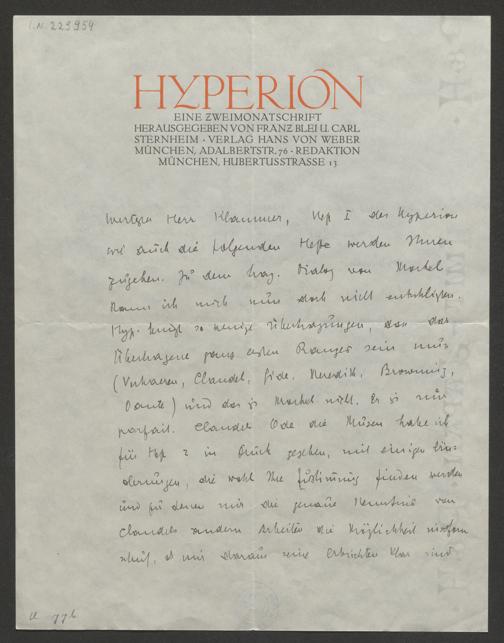 I.N. 225954
HYPERION
EINE ZWEIMONATSCHRIFT
HERAUSGEGEBEN VON FRANZ BLEI U. CARL
STERNHEIM · VERLAG HANS VON WEBER
MÜNCHEN, ADALBERTSTR. 76 - REDAKTION
MÜNCHEN, HUBERTUSSTRASSE 13
Herr Klammer, Heft I des Hyperion
wie auch die folgenden Hefte werden Ihnen
zugehen. Zu dem Dialog von
kann ich mich nun doch nicht entschliessen.
Hyp. bringt so wenige Übertragungen, dass das
Übertragene ganz ersten Ranges sein muss
(Verhaeren, Claudel, Gide, Meredith, Browning,
Dante) und das is nicht. Er is nur
parfait. Claudels Ode die Musen habe ich
für Heft 2 in Druck gegeben, mit einigen Än-
derungen, die wohl Ihre Zustimmung finden werden
und zu denen mir die genaue Kenntnis von
Claudels andern Arbeiten die Möglichkeit
schuf, als mir daraus seine Absichten klar sind